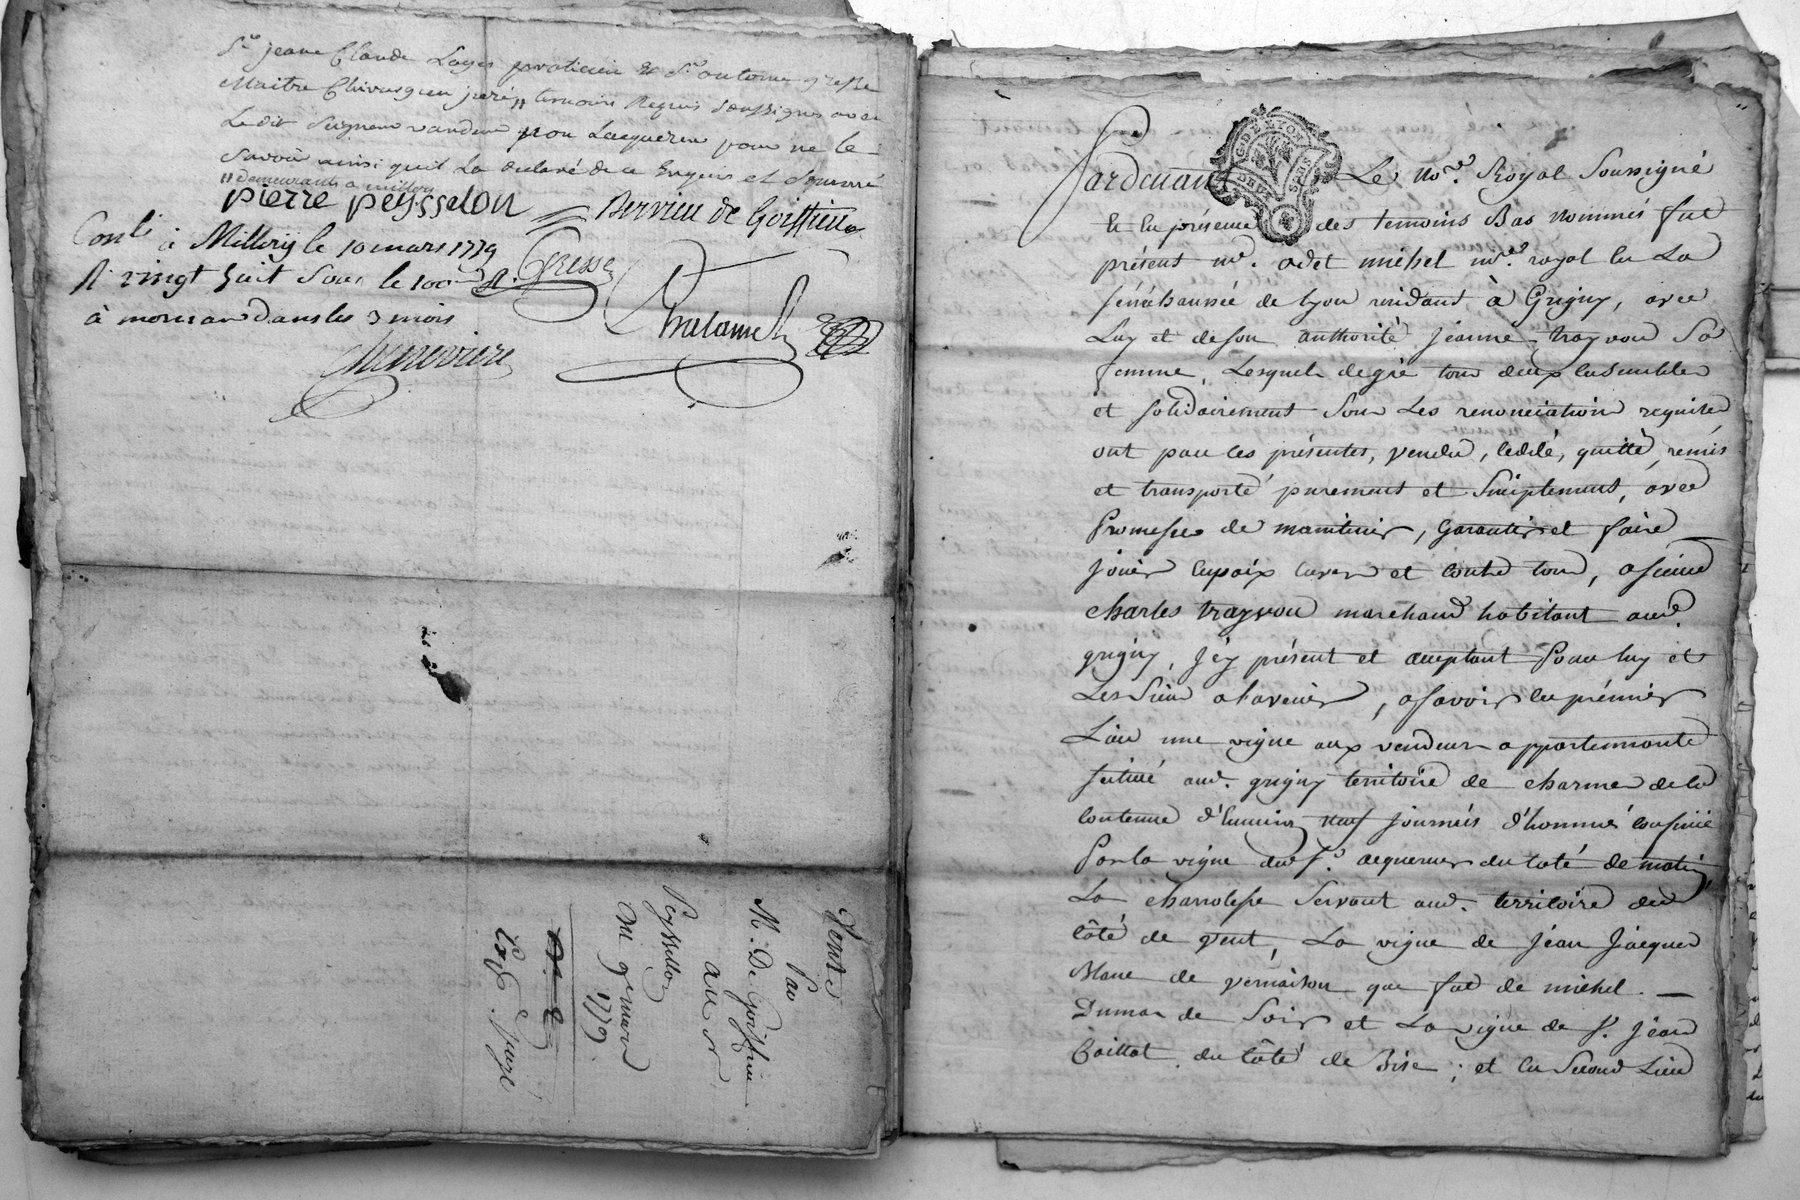 Sr jeane Claude Layer praticien et Sr antoine gresse
Maitre Chirurgien juré,, temoins Requis Soussignés avec
Le dit Seigneur vandeur non Lacquereur pour ne le
Savoir ainsi quil La declaré de ce Enquis et Sommé
,, demeurants a millery
pierre peysselon Bervieu de Goiffieu
Conlé à Millery le 10 mars 1779 Gresse
R vingt huit Sous le 100e
à mornan dans les 3 mois Chalamel
Chenevriere
Vente
Par
M. De Goiffieu
au Sr
Peyssellon
du 9e mars
1779.
Pardevant Le Nore. Royal Soussigné
G. DE LYON
DEUX SOLS
Et En présence des temoins Bas nommés fut
présent me. odet michel nore. royal en La
sénéchaussée de lyon residant à Grigny, avec
Luy et de son authorité jeanne trayvou Sa
femme, Lesquels de gré tous deux Ensembles
et solidairement Sous Les renonciations requises
ont par ces présentes, vendu, cédé, quitté, remis
et transporté purement et Simplement, avec
Promesse de maintenir, garantir et faire
jouir en paix envers et contre tous, a sieur
charles trayvou marchand habitant aud.
grigny, jcy présent et acceptant Pour luy et
Les Siens a l'avenir, asavoir en prémier
Lieu une vigne aux vendeurs appartenante
scituée aud. grigny territoire de charmes de la
contenue d'Environ neuf journées d'homme confinée
Par la vigne dud. Sr. acquereur du coté de matin,
La charrolesse Servant aud. territoire du
côté de vent, La vigne de jéan jacques
Blanc de vernaison que fut de michel
Dumas de Soir et La vigne de Sr. jéan
Boittot du côté de Bise; et en Second Lieu